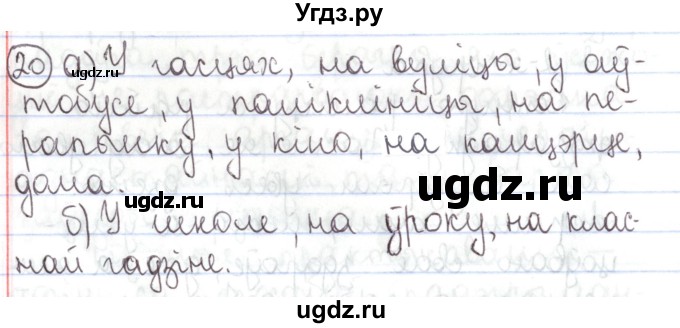 Угдз.ру
20 а) У гасцях, на вуліцы, у аў-
тобусе, у паліклініцы, на пе-
рапынку, у кіно, на канцэрце,
дома.
б) У школе, на ўроку, на клас-
най гадзіне.
ugdz.ru
ugdz.ru
ugdz.ru
ugdz.ru